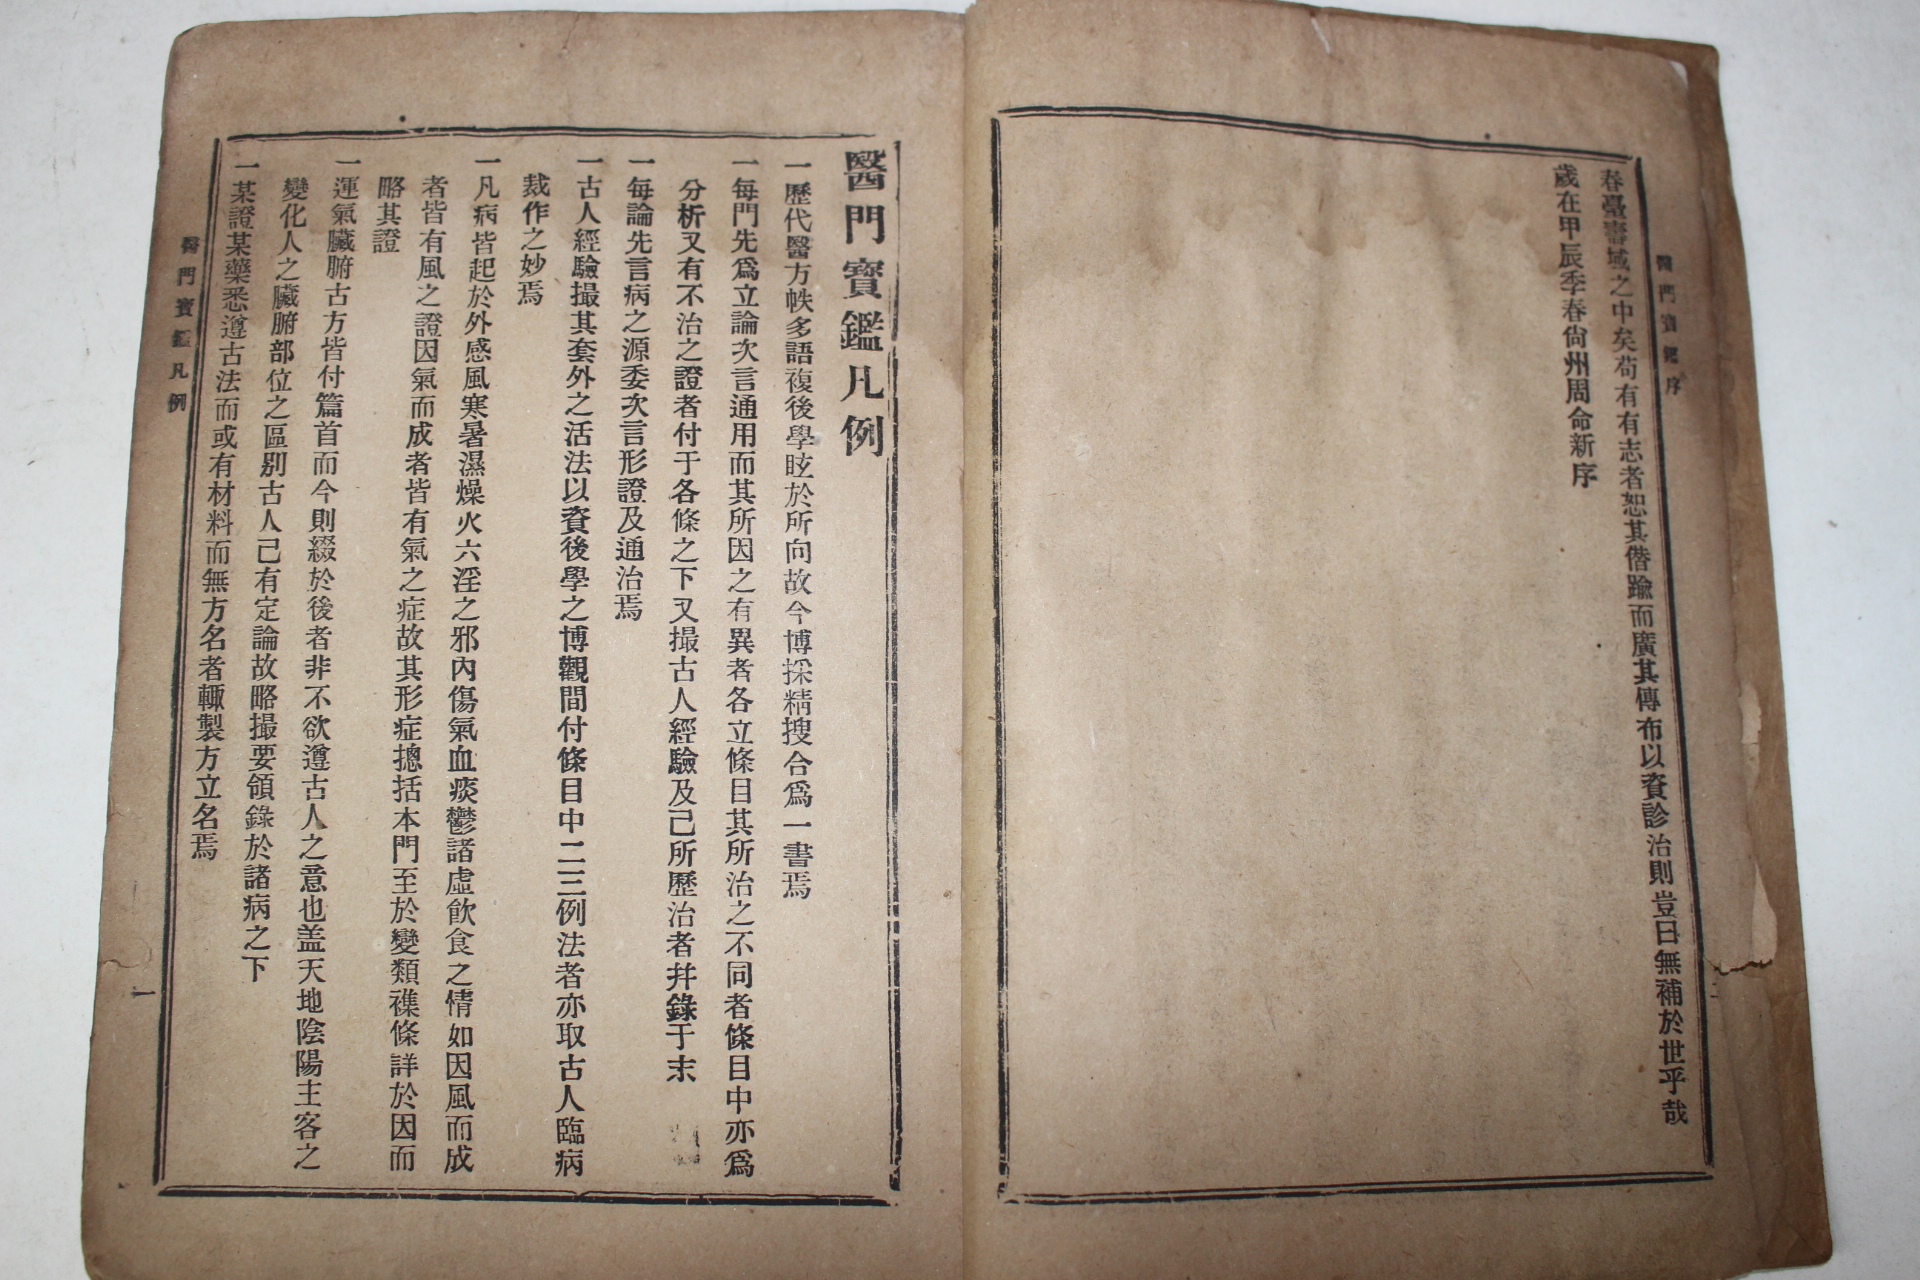 醫門寶鑑序
春臺壽域之中矣苟有有志者恕其僭踰而廣其傳布以資診治則豈曰無補於世乎哉
歲在甲辰季春尙州周命新序
二
醫門寶鑑凡例
一歷代醫方帙多語複後學眩於所向故今博採精搜合爲一書焉
一每門先爲立論次言通用而其所因之有異者各立條目其所治之不同者條目中亦爲
分析又有不治之證者付于各條之下又撮古人經驗及己所歷治者幷錄于末
一每論先言病之源委次言形證及通治焉
一古人經驗撮其套外之活法以資後學之博觀間付條目中二三例法者亦取古人臨病
裁作之妙焉
一凡病皆起於外感風寒暑濕燥火六淫之邪內傷氣血痰鬱諸虛飮食之情如因風而成
者皆有風之證因氣而成者皆有氣之症故其形症摠括本門至於變類襍條詳於因而
略其證
一運氣臟腑古方皆付篇首而今則綴於後者非不欲遵古人之意也盖天地陰陽主客之
變化人之臟腑部位之區别古人己有定論故略撮要領錄於諸病之下
一某證某藥悉遵古法而或有材料而無方名者輒製方立名焉
醫門寶鑑凡例
一